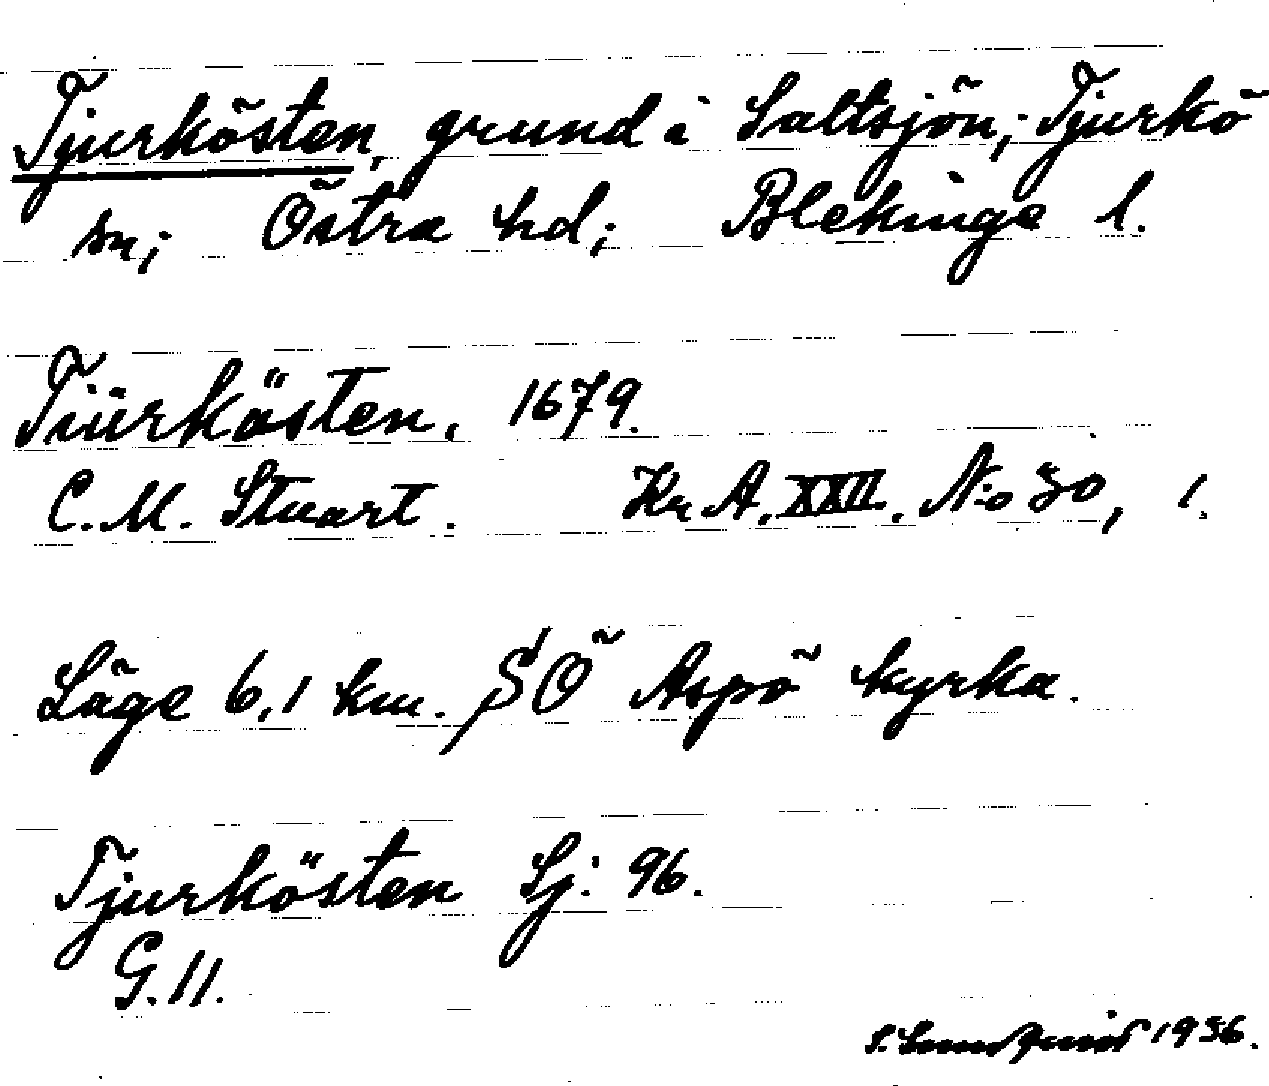 Tjurkösten, grund i Saltsjön; Tjurkö
sn; Östra hd; Blekinge l.
Tiürkösten. 1679.
C. M. Stuart. Kr A. XXII. No 30, 1.
Läge 6,1 km. SÖ Aspö kyrka.
Tjurkösten Sj: 96.
G. 11.
S. 1936.